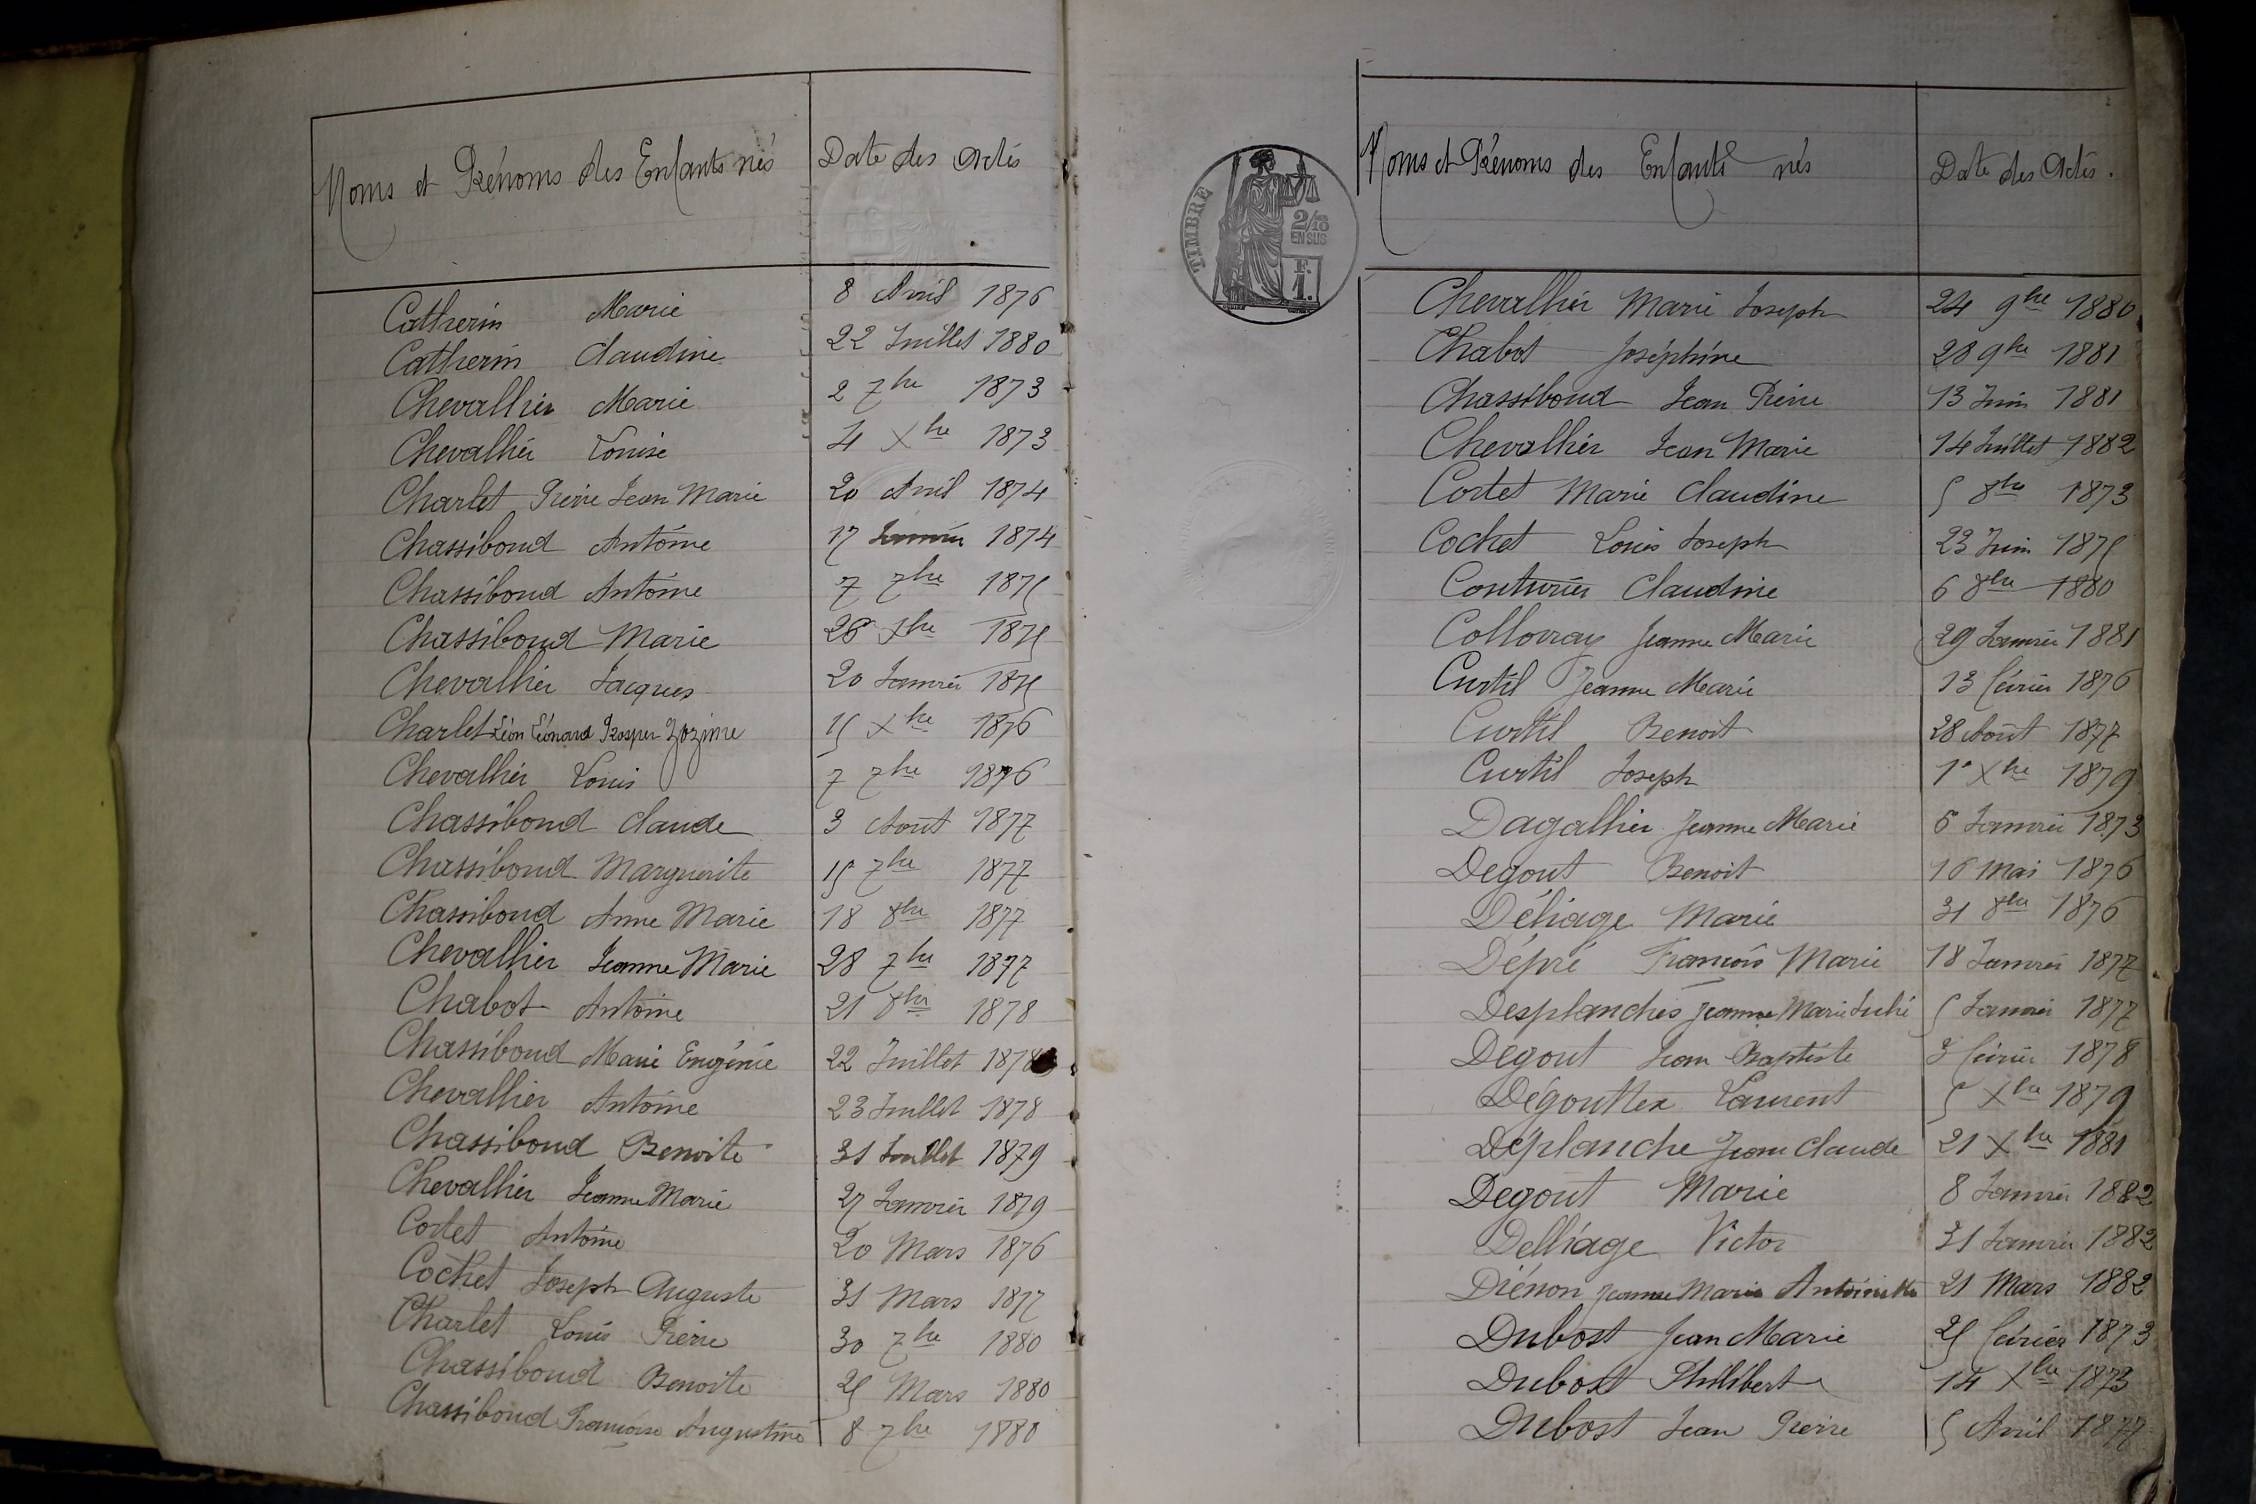 Noms et Prénoms des Enfants nés Date des Actes
Catherin Marie 8 Avril 1876
Catherin Claudine 22 Juillet 1880
Chevallier Marie 2 7bre 1873
Chevallier Louise 4 Xbre 1873
Charlet Pierre Jean Marie 20 Avril 1874
Chassiboud Antoine 17 Janvier 1874
Chassiboud Antoine 7 7bre 1875
Chassiboud Marie 26 Xbre 1875
Chevallier Jacques 20 Janvier 1875
Charlet Léon Léonard Prosper Zozime 15 Xbre 1876
Chevallier Louis 7 7bre 1876
Chassiboud Claude 3 Août 1877
Chassiboud Marguerite 15 7bre 1877
Chassiboud Anne Marie 18 8bre 1877
Chevallier Jeanne Marie 28 7bre 1877
Chabot Antoine 21 8bre 1878
Chassiboud Marie Eugénie 22 Juillet 1878
Chevallier Antoine 23 Juillet 1878
Chassiboud Benoite 31 Juillet 1879
Chevallier Jeanne Marie 27 Janvier 1879
Cortet Antoine 20 Mars 1876
Cochet Joseph Auguste 31 Mars 1877
Charlet Louis Pierre 30 7bre 1880
Chassiboud Benoite 25 Mars 1880
Chassiboud Françoise Augustine 8 7bre 1880
TIMBRE
2/10
EN SUS
F.
1.
Noms et Prénoms des Enfants nés Date des Actes.
Chevallier Marie Joseph 24 9bre 1880
Chabot Joséphine 28 9bre 1881
Chassiboud Jean Pierre 13 Juin 1881
Chevallier Jean Marie 14 Juillet 1882
Cortet Marie Claudine 5 8bre 1873
Cochet Louis Joseph 23 Juin 1875
Couturier Claudine 6 8bre 1880
Collovray Jeanne Marie 29 Janvier 1881
Curtil Jeanne Marie 13 février 1876
Curtil Benoit 28 Août 1877
Curtil Joseph 1er Xbre 1879
Dagallier Jeanne Marie 5 Janvier 1873
Degout Benoit 16 Mai 1876
Déliage Marie 31 8bre 1876
Dépré François Marie 18 Janvier 1877
Desplanches Jeanne Marie 5 Janvier 1877
Degout Jean Baptiste 3 février 1878
Dégouttex Laurent 5 Xbre 1879
Déplanche Jean Claude 21 Xbre 1881
Degout Marie 8 Janvier 1882
Delliage Victor 31 Janvier 1882
Diénon Jeanne Marie Antoinette 21 Mars 1882
Dubost Jean Marie 25 février 1873
Dubost Philibert 14 Xbre 1873
Dubost Jean Pierre 5 Avril 1877